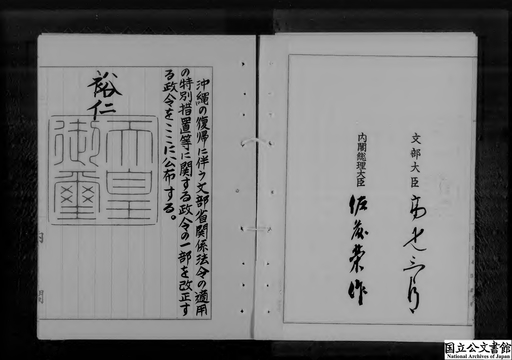 文部大臣 高見三郎
内閣総理大臣 佐藤榮作
沖縄の復帰に伴う文部省関係法令の適用
の特別措置等に関する政令の一部を改正す
る政令をここに公布する。
裕仁
天皇
御璽
国立公文書館
National Archives of Japan